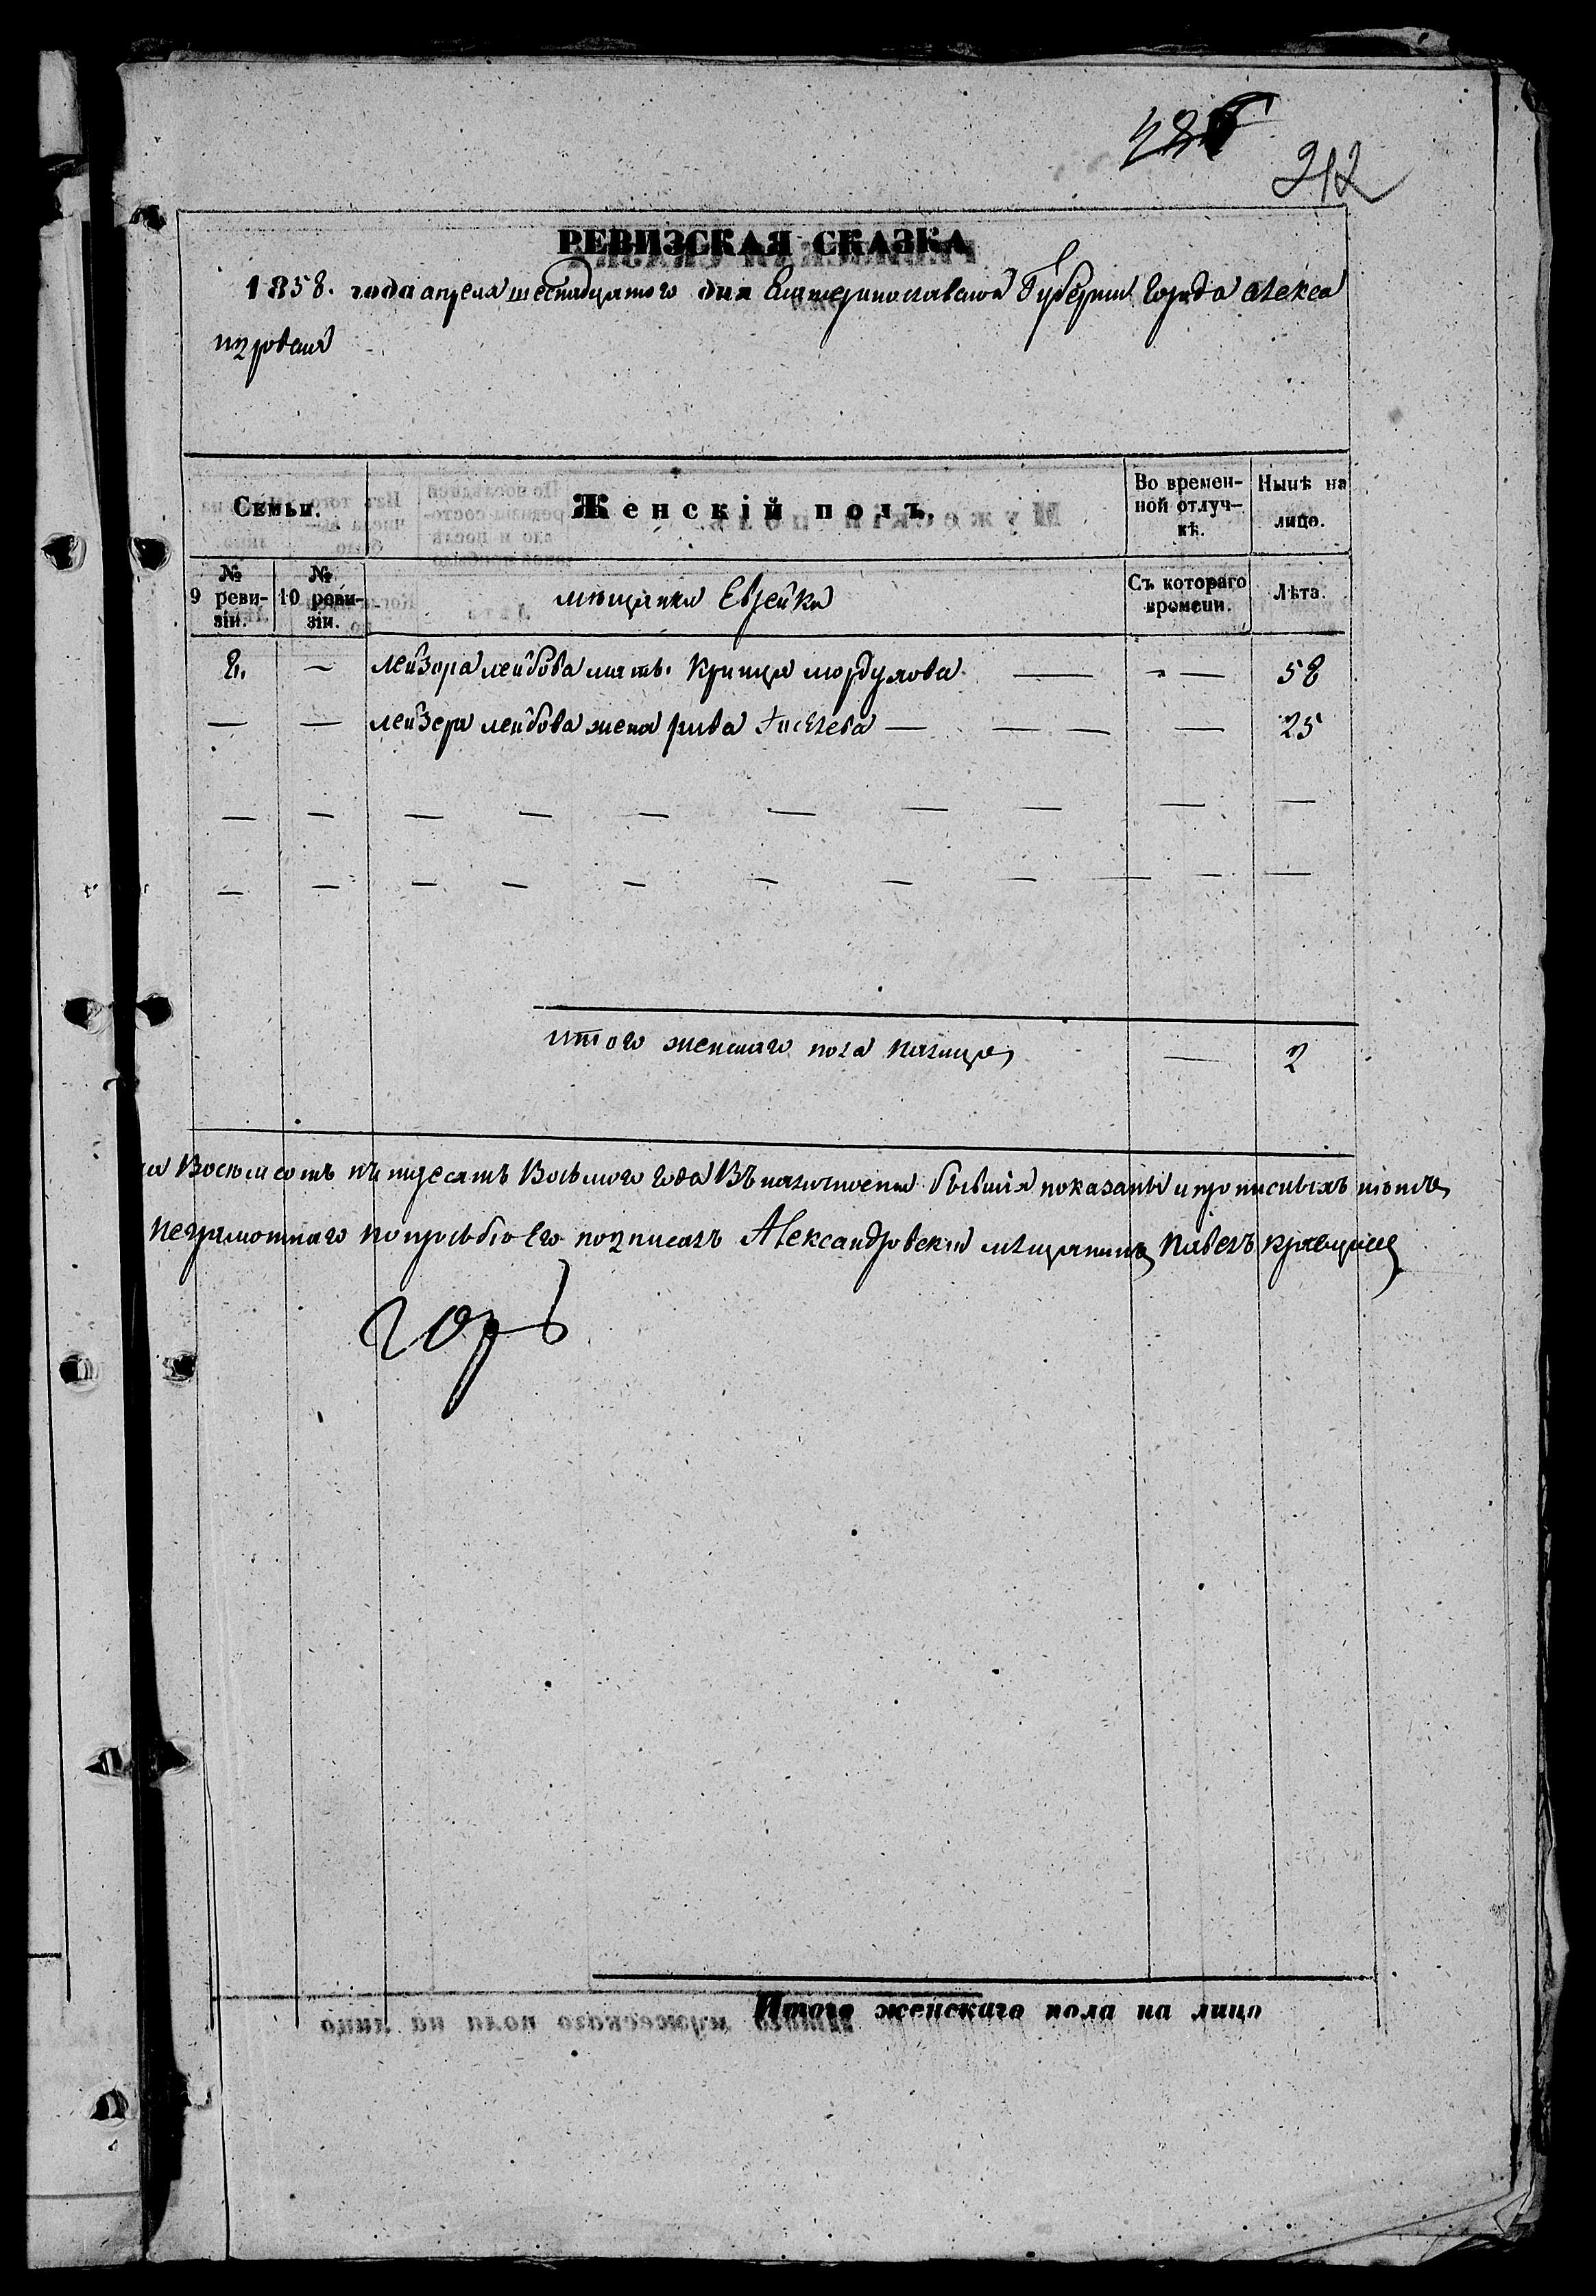 212
РЕВИЗСКАЯ СКАЗКА
1858. года апреля шестнадцятого дня Екатеринославской Губернии Города Алекса
ндровска
Семьи.
Женскій полъ.
Во времен-
ной отлуч-
кѣ.
Нынѣ на
лицо.
№
9 реви-
зіи.
№
10 реви-
зіи.
мещанки Еврейки
Съ котораго
времени.
Лѣта.
2. — Лейзора лейбова мать. Крейця мордухова — — 58
— — лейзера лейбова жена рива — — — — 25
итого женскаго пола налицо — 2
Восемсотъ пятдесятъ Восьмого года Въ бывшія показаны и прописныхъ
неграмотнаго попросьбе Его подписалъ Александровскій мещанинъ Павелъ
Итого женскаго пола на лицо